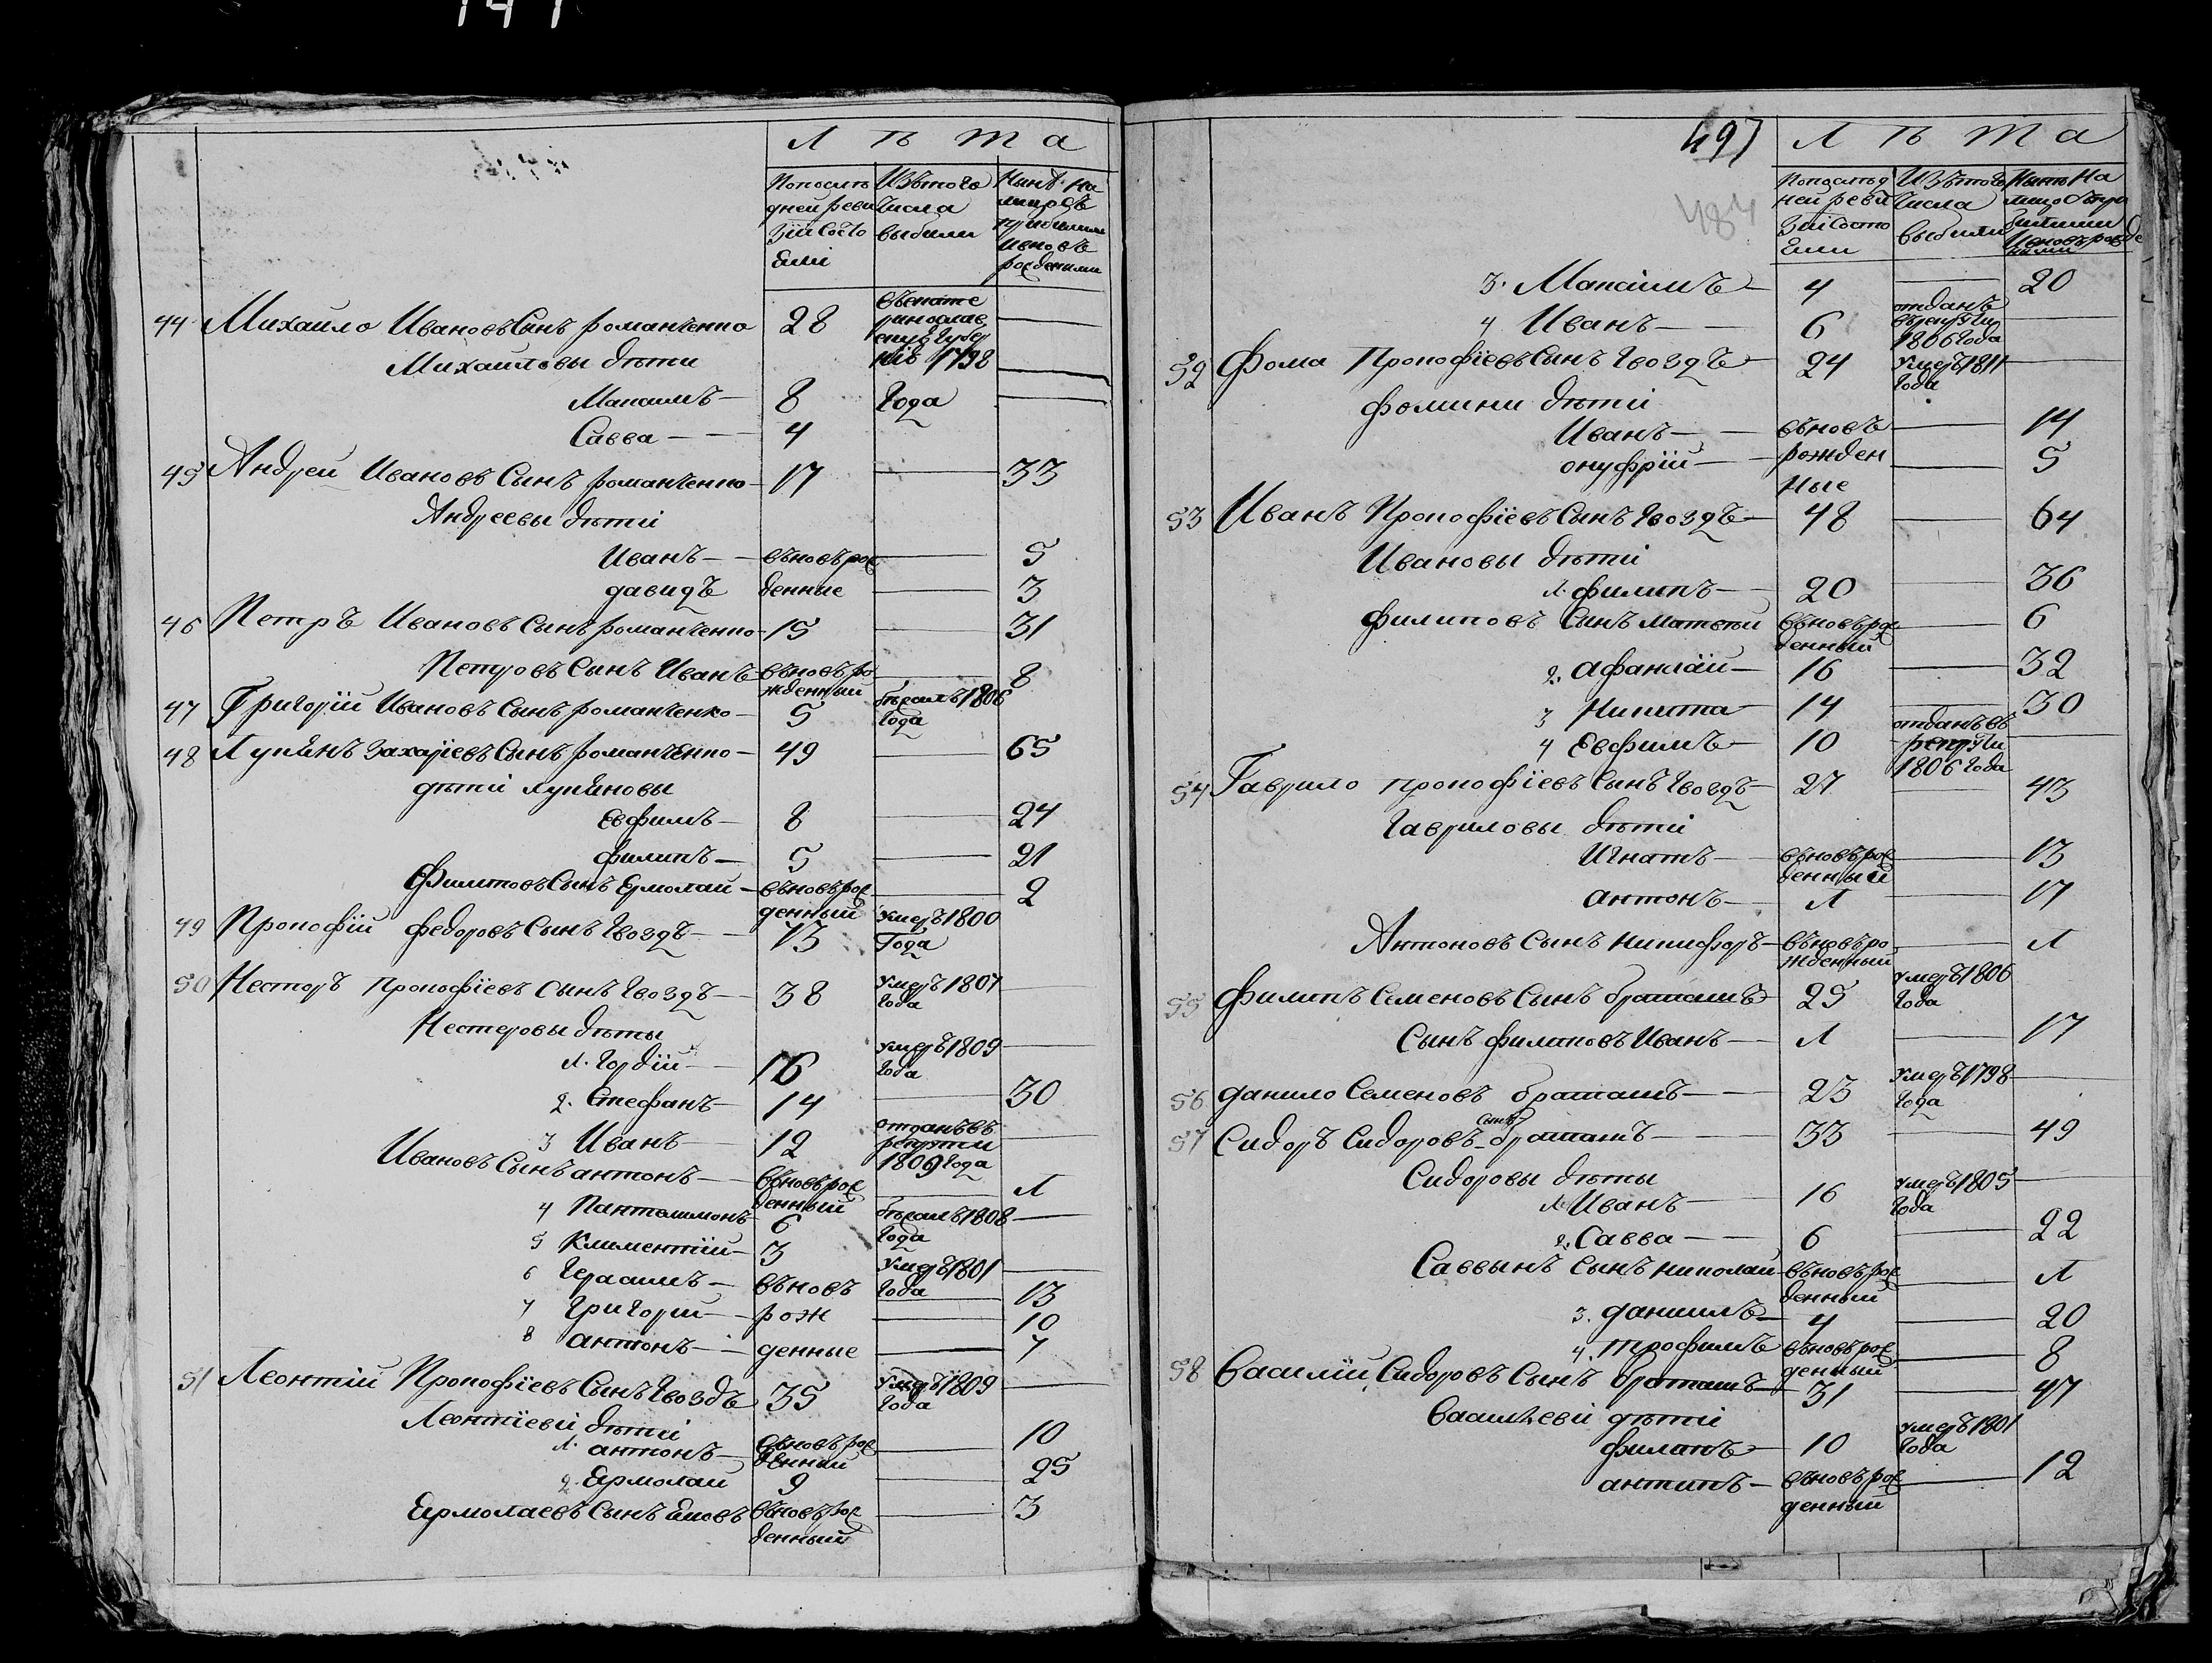 Л ѣ т а
Попослѣ дней реви зіи состо яли
Изътого числа выбыли
Нынѣ на лицо съ прибылыми ивновь рождеными
44 Михаило Ивановъ Сынъ романченко 28 въекате ринослав скую губер нію 1798
Михаиловы дѣти
Максимъ 8 Года
Савва 4
45 Андрей Ивановъ Сынъ романченко 17 33
Андреевы дѣти
Иванъ вьновь рож 5
давидъ денние 3
46 Петръ Ивановъ Сынъ романченко 15 31
Петровъ Сынъ Иванъ вьновь ро жденный 8
47 Григорій Ивановъ Сынъ романченко 5 бѣжалъ 1806 Года
48 Лукянъ Захаріевъ Сынъ романченко 49 65
дѣти лукяновы
Евфимъ 8 24
филипъ 5 21
Филиповъ Сынъ Ермолай вьновь рож денный 2
49 Прокофій федоровъ Сынъ Гвоздь 73 Умеръ 1800 Года
50 Несторъ Прокофіевъ Сынъ Гвоздь 38 Умеръ 1807 Года
Нестеровы дѣты
1. Гордій 16 Умеръ 1809 Года
2. Стефанъ 14 30
3 Иванъ 12 отданъ въ рекруты 1809 Года
Ивановъ Сынъ антонъ вьновь рож денный 1
4 Пантелимонъ 6 бѣжалъ 1808 Года
5 Климентій 3 Умеръ 1801 Года
6 Герасимъ вьновь 13
7 Григорій рож 10
8 антонъ денные 7
51 Леонтій Прокофіевъ Сынъ Гвоздь 35 Умеръ 1809 Года
Леонтіеви дѣти
1. антонъ вьновь рож денний 10
2. Ермолай 9 25
Ермолаевъ Сынъ вьновь рож денный 3
497
487
Л ѣ т а
Попослѣд ней реви зіи состо яли
Изътого числа выбили
Нынѣ На лицо съ при билими ивновь рожде ными
3. Максимъ 4 20
4 Иванъ 6 отданъ въ рекруты 1806 Года
52 Фома Прокофіевъ Сынъ Гвоздь 24 Умеръ 1811 Года
фомини дѣти
Иванъ вьновь 14
онуфрій рожден ные 5
53 Иванъ Прокофіевъ Сынъ Гвоздь 48 64
Ивановы дѣти
1. филипъ 20 36
филиповъ Сынъ матвѣй вьновь рож денный 6
2. афанасій 16 32
3 Никита 14 30
4 Евфимъ 10 отданъ въ рекруты 1806 Года
54 Гаврило прокофіевъ Сынъ Гвоздь 27 43
Гавриловы дѣти
Игнатъ вьновь рож денный 13
антонъ 1 17
Антоновъ Сынъ никифоръ вьновь ро жденный 1
55 Филипъ Семеновъ Сынъ браташъ 25 умеръ 1806 Года
Сынъ филиповъ Иванъ 1 17
56 данило Семеновъ браташъ 23 Умеръ 1798 Года
57 Сидоръ Сидоровъ Сынъ браташъ 33 49
Сидоровы дѣты
1. Иванъ 16 умеръ 1805 Года
2. Савва 6 22
Саввынъ Сынъ николай вьновь рож денный 1
3. даниилъ 4 20
4. трофимъ вьновь рож денный 8
58 Василій Сидоровъ Сынъ браташъ 31 47
Василіеви дѣти
филипъ 10 умеръ 1801 Года
антипъ вьновь рож денный 12